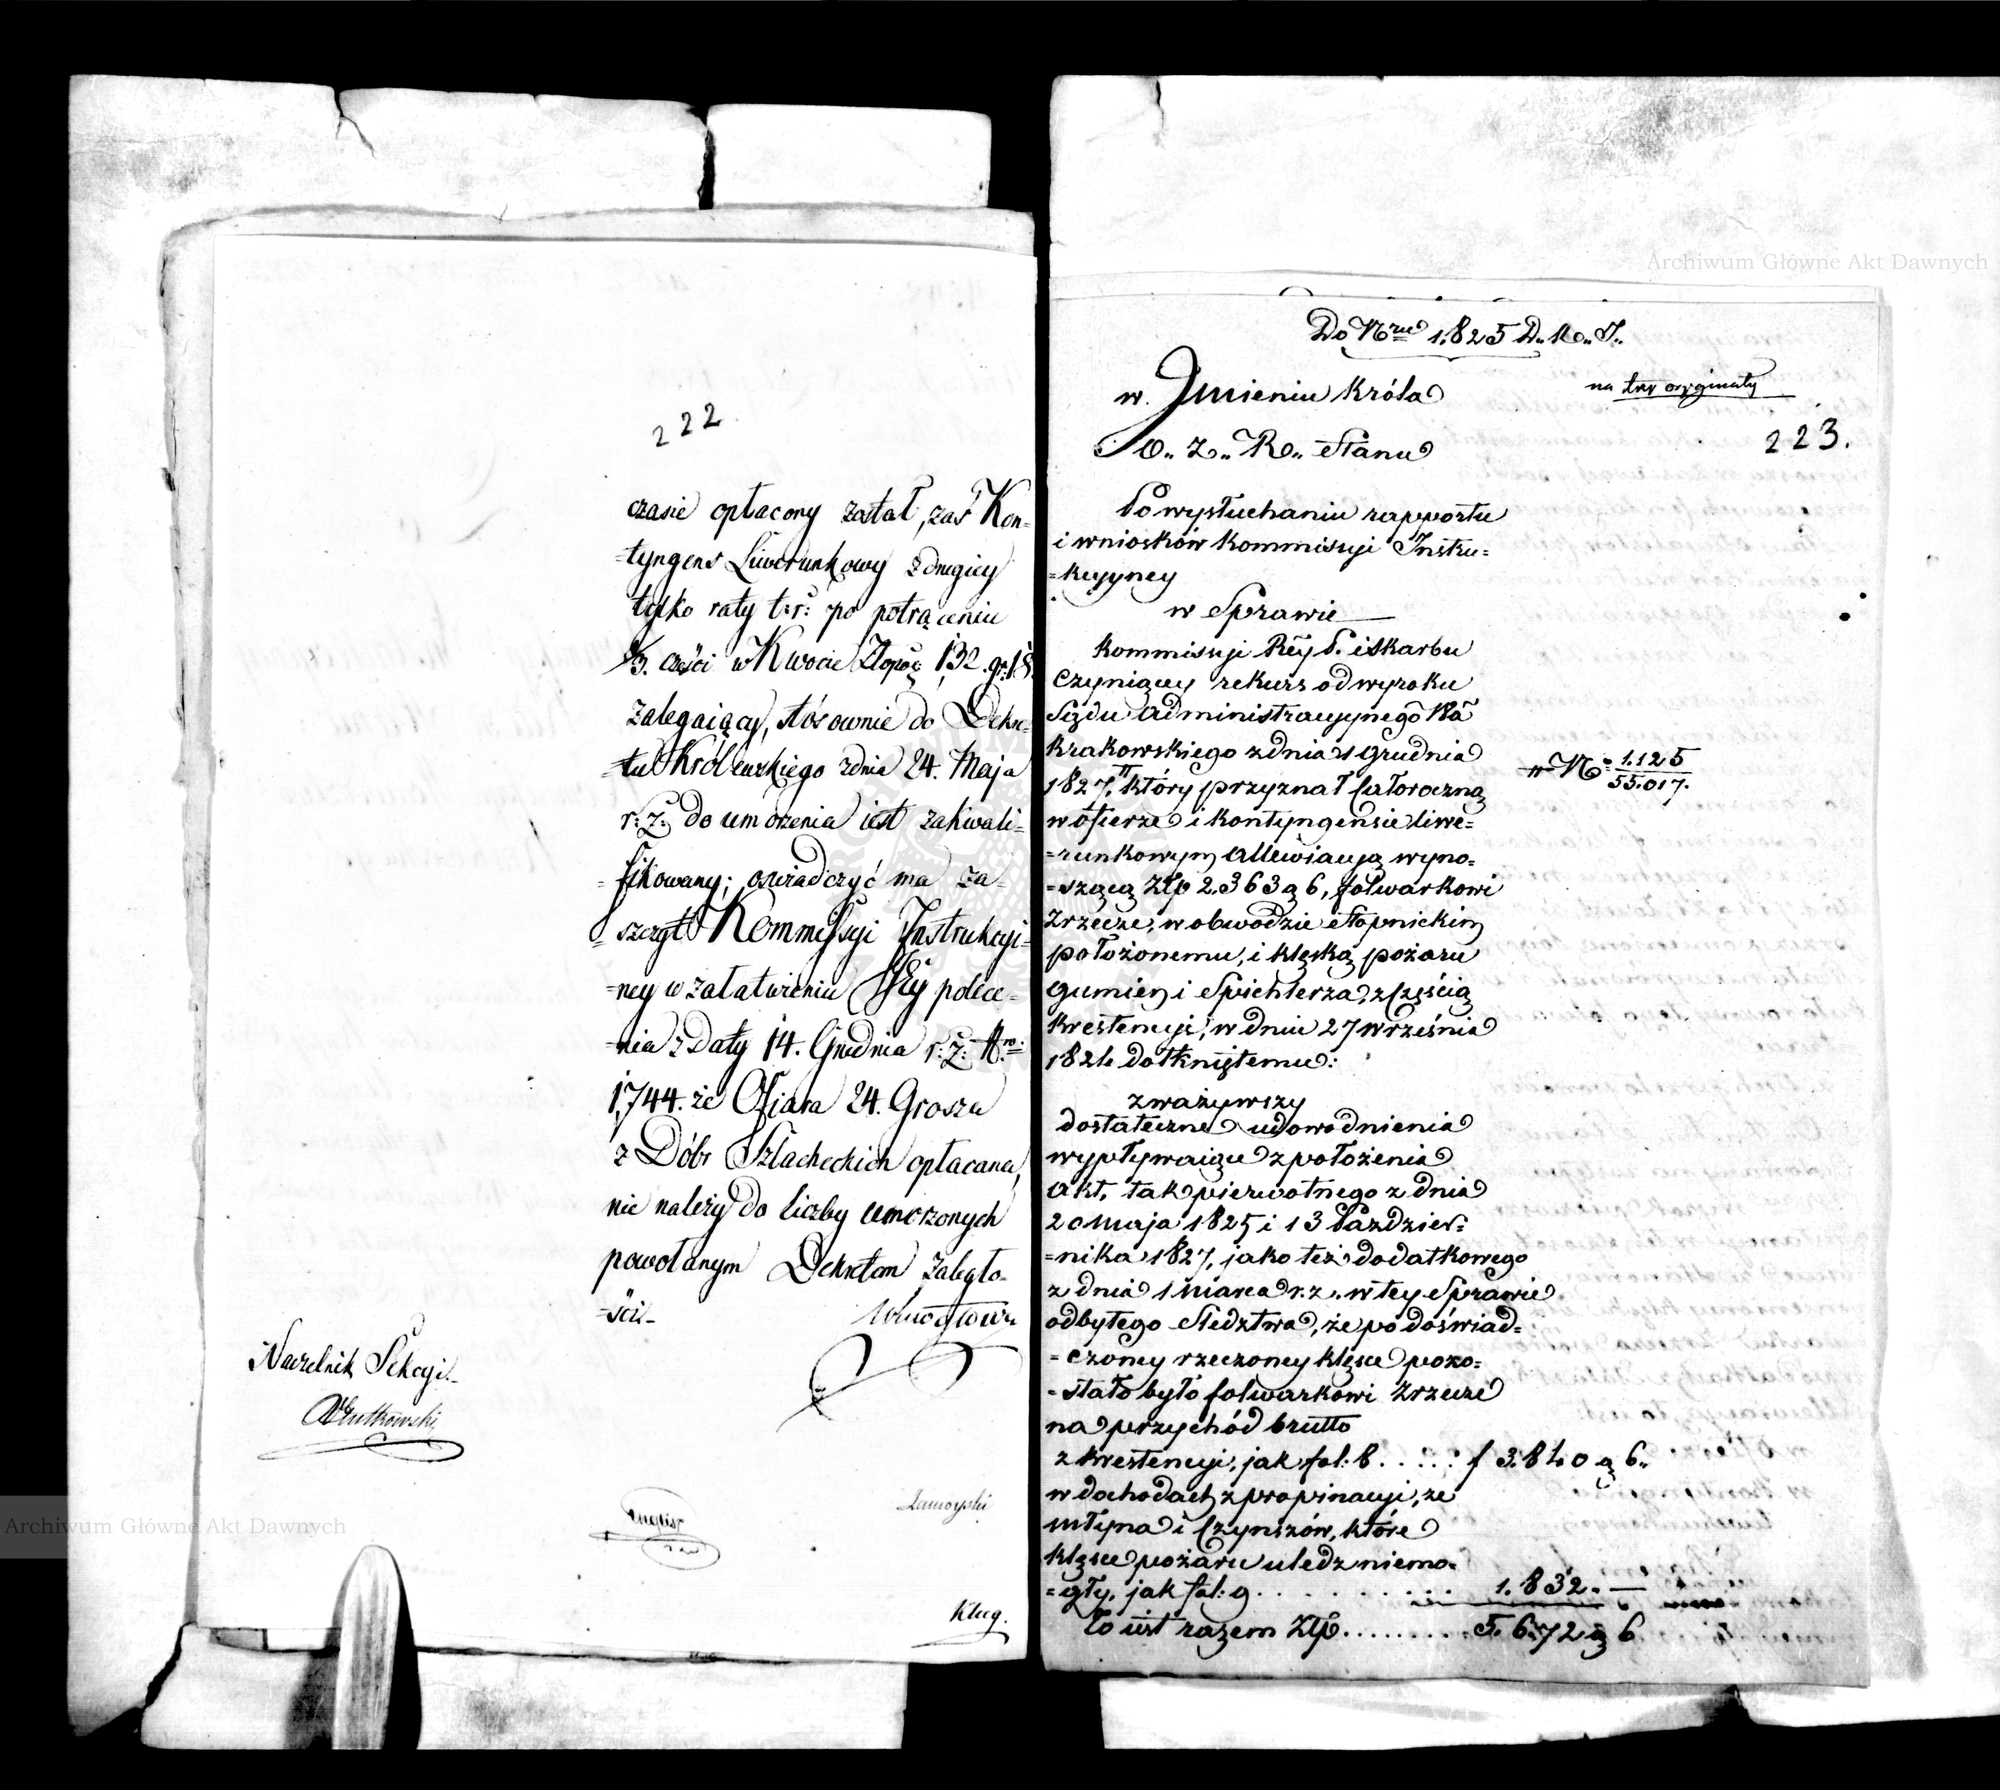 222
czasie opłacony został, zaś Kon-
-tyngens Liwerunkowy z drugiey
tylko raty t. r: po potrąceniu
1/3. części w Kwocie Złopoł: 132. gr: 18.
zalegaiący, stósownie do Dekre-
-tu Królewskiego z dnia 24. Maja
r: z: do umorzenia iest zakwali-
-fikowany; oświadczyć ma za-
-szczyt Kommissyi Instrukcyi-
-ney w załatwieniu Jey polece-
-nia z Daty 14. Grudnia r: z: Nro:
1,744. że Ofiara 24. Grosza
z Dóbr Szlacheckich opłacana,
nie należy do liczby umorzonych
powołanym Dekretem zaległo-
-ści.
Naczelnik Sekcyi.
Zamoyski
Klug.
Do Nru 1.825 D. K. I.
w Jmieniu Króla
na trzy oryginały
R. Stanu
223.
Po wysłuchaniu rapportu
i wniosków Kommissyi Instru-
-kcyyney
w Sprawie
Kommissyi Rząd: P. i Skarbu
czyniącey rekurs od wyroku
Sądu Administracyynego Wa
Krakowskiego z dnia 1 Grudnia
No 1.125
55.017.
1827, który przyznał Całoroczną
w ofierze i kontyngensie liwe-
-runkowym Allewiacyą wyno-
-szącą Złp 2.363 g 6, folwarkowi
Zrzecze, w obwodzie Stopnickim
położonemu, i klęską pożaru
gumien i Spichlerza, z Częścią
krestencyi, w dniu 27 września
1824 dotkniętemu:
zważywszy
dostateczne udowodnienia
wypływaiące z położenia
Akt, tak pierwotnego z dnia
20 maja 1825 i 13 Paździer-
-nika 1827, jako też dodatkowego
z dnia 1 marca r. z. w tey Sprawie
odbytego Śledztwa, że po doświad-
-czoney rzeczoney klęsce pozo-
-stało było folwarkowi Zrzecze
na przychód brutto
z krestencyi, jak fol: 8. . . . . f 3.840 g 6.
w dochodach z propinacyi, ze
młyna i Czynszów, które
klęsce pożaru uledz niemo-
-gły, jak fol: 9. . . . . . . . . 1.832. —
To iest razem Złp. . . . . . . . 5.672 g 6
Archiwum Główne Akt Dawnych
Archiwum Główne Akt Dawnych